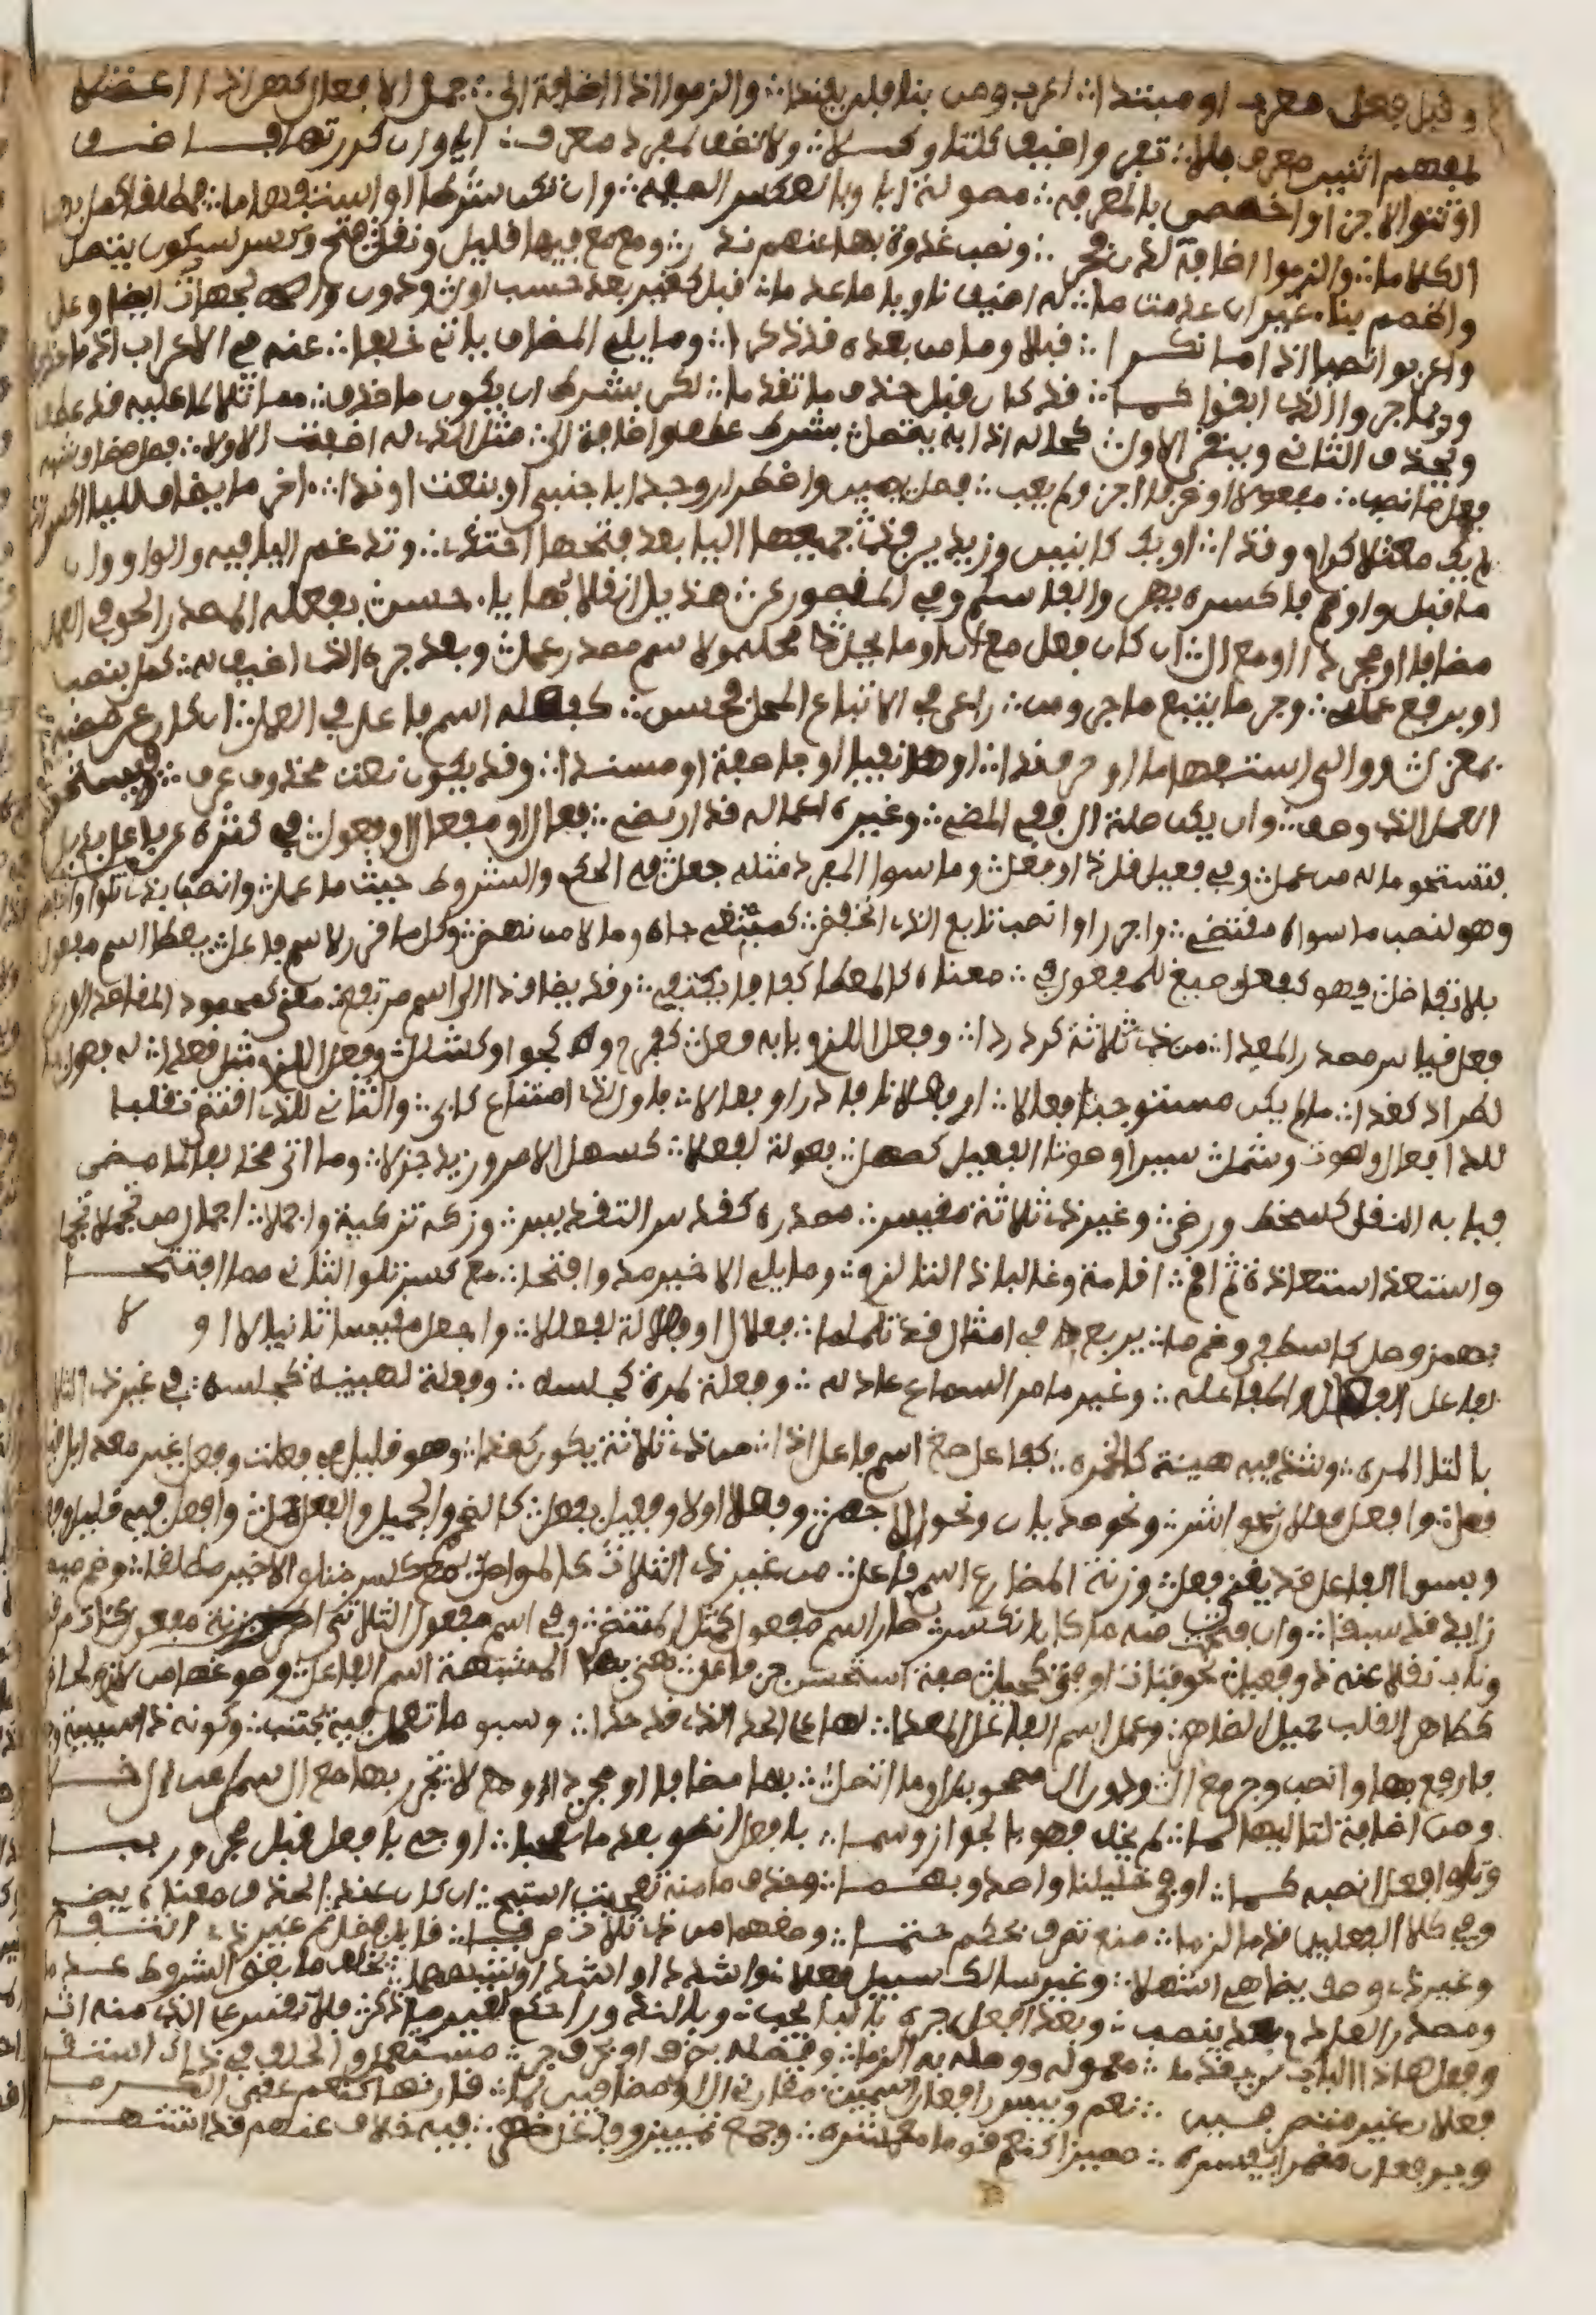 وقبل فعل معرب او مبتدا ∴ اعرب ومن بنا فلن يفندا ∴ والزموا اذا اضافة الى ∴ جمل الافعال كهن اذا اعتلا
لمفهم اثنين معرف بلا ∴ تفرق اضيف كلتا وكلا ∴ ولا تضف لمفرد معرف ∴ ايا وان كررتها فاضف
او تنو الاجزا واخصصن بالمعرفه ∴ موصولة ايا وبالعكس الصفه ∴ وان تكن شرطا او استفهاما ∴ فمطلقا كمل بها
الكلاما ∴ والزموا اضافة لدن فجر ∴ ونصب غدوة بها عنهم ندر ∴ ومع مع فيها قليل ونقل فتح وكسر لسكون يتصل
واضمم بناء غير ان عدمت ما ∴ له اضيف ناويا ما عدما ∴ قبل كغير بعد حسب اول ∴ ودون والجهات ايضا وعل
واعربوا نصبا اذا ما نكرا ∴ قبلا وما من بعده قد ذكرا ∴ وما يلي المضاف ياتي خلفا ∴ عنه في الاعراب اذا ما حذفا
وربما جروا الذي ابقوا كما ∴ قد كان قبل حذف ما تقدما ∴ لكن بشرط ان يكون ما حذف ∴ مماثلا لما عليه قد عطف
ويحذف الثاني ويبقى الاول ∴ كحاله اذا به يتصل ∴ بشرط عطف واضافة الى ∴ مثل الذي له اضفت الاولا ∴ فصل مضاف شبه
فعل ما نصب ∴ مفعولا او ظرفا اجز ولم يعب ∴ فصل يمين واضطرارا وجدا ∴ باجنبي او بنعت او ندا ∴ اخر ما يضاف لليا اكسر اذا
لم يك معتلا كرام وقذا ∴ او يك كابنين وزيدين فذي ∴ جميعها اليا بعد فتحها احتذي ∴ وتدغم اليا فيه والواو وان
ما قبل واو ضم فاكسره يهن والفا سلم وفي المقصور عن ∴ هذيل انقلابها ياء حسن ∴ بفعله المصدر الحق في العمل
مضافا او مجردا او مع ال ∴ ان كان فعل مع ان او ما يحل ∴ محله ولاسم مصدر عمل ∴ وبعد جره الذي اضيف له ∴ كمل بنصب
او برفع عمله ∴ وجر ما يتبع ما جر ومن ∴ راعى في الاتباع المحل فحسن ∴ كفعله اسم فاعل في العمل ∴ ان كان عن مضيه
بمعزل ∴ وولي استفهاما او حرف ندا ∴ او نفيا او جا صفة او مسندا ∴ وقد يكون نعت محذوف عرف ∴ فيستحق
العمل الذي وصف ∴ وان يكن صلة ال ففي المضي ∴ وغيره اعماله قد ارتضي ∴ فعال او مفعال او فعول ∴ في كثرة عن فاعل بديل
فيستحق ما له من عمل ∴ وفي فعيل قل ذا وفعل ∴ وما سوى المفرد مثله جعل ∴ في الحكم والشروط حيث ما عمل ∴ وانصب بذي تلوا واخفض
وهو لنصب ما سواه مقتضي ∴ واجرر او انصب تابع الذي انخفض ∴ كمبتغي جاه ومالا من نهض ∴ وكل ما قرر لاسم فاعل ∴ يعطى اسم مفعول
بلا تفاضل ∴ فهو كفعل صيغ للمفعول في ∴ معناه كالمعطى كفافا يكتفي ∴ وقد يضاف ذا الى اسم مرتفع ∴ معنى كمحمود المقاصد الورع
فعل قياس مصدر المعدا ∴ من ذي ثلاثة كرد ردا ∴ وفعل اللازم بابه فعل ∴ كفرح وكجوا وكشلل ∴ وفعل اللازم مثل قعدا ∴ له فعول با
طراد كغدا ∴ ما لم يكن مستوجبا فعالا ∴ او فعلانا فادر او فعالا ∴ فاول لذي امتناع كابى ∴ والثاني للذي اقتضى تقلبا
للدا فعال او لصوت وشمل ∴ سيرا وصوتا الفعيل كصهل ∴ فعولة فعالة لفعلا ∴ كسهل الامر وزيد جزلا ∴ وما اتى مخالفا لما مضى
فبابه النقل كسخط ورضى ∴ وغير ذي ثلاثة مقيس ∴ مصدره كقدس التقديس ∴ وزكه تزكية واجملا ∴ اجمال من تجملا تجملا
واستعذ استعاذة ثم اقم ∴ اقامة وغالبا ذا التا لزم ∴ وما يلي الاخير مد وافتحا ∴ مع كسر تلو الثاني مما افتتحا
بهمز وصل كاصطفى وضم ما ∴ يربع في امثال قد تلملما ∴ فعلال او فعللة لفعللا ∴ واجعل مقيسا ثانيا لا او لا
لفاعل الفعال والمفاعله ∴ وغير ما مر السماع عادله ∴ وفعلة لمرة كجلسه ∴ وفعلة لهيئة كجلسه ∴ في غير ذي الثلاث
بالتا المره ∴ وشذ فيه هيئة كالخمره ∴ كفاعل صغ اسم فاعل اذا ∴ من ذي ثلاثة يكون كغذا ∴ وهو قليل في فعلت وفعل غير معدى بل قيا
فعل ∴ وافعل فعلان نحو اشر ∴ ونحو صديان ونحو الاجهر ∴ وفعل اولا وفعيل بفعل ∴ كالضخم والجميل والفعل جمل ∴ وافعل فيه قليل وفعل
وبسوا الفاعل قد يغنى فعل ∴ وزنة المضارع اسم فاعل ∴ من غير ذي الثلاث كالمواصل ∴ مع كسر متلو الاخير مطلقا ∴ وضم ميم
زايد قد سبقا ∴ وان فتحت منه ما كان انكسر ∴ صار اسم مفعول كمثل المنتظر ∴ وفي اسم مفعول الثلاثي اطرد زنة مفعول كات من قصد
وناب نقلا عنه ذو فعيل ∴ نحو فتاة او فتى كحيل ∴ صفة استحسن جر فاعل ∴ معنى بها المشبهة اسم الفاعل ∴ وصوغها من لازم لحاضر
كطاهر القلب جميل الظاهر ∴ وعمل اسم الفاعل المعدا ∴ لها على الحد الذي قد حدا ∴ وسبق ما تعمل فيه مجتنب ∴ وكونه ذا سببية وجب
فارفع بها وانصب وجر مع ال ∴ ودون ال مصحوب ال وما اتصل ∴ بها مضافا او مجردا ولا ∴ تجرر بها مع ال سما من ال خلا
ومن اضافة لتاليها وما ∴ لم يخل فهو بالجواز وسما ∴ بافعل انطق بعد ما تعجبا ∴ او جئ بافعل قبل مجرور ببا
وتلو افعل انصبنه كما ∴ اوفى خليلينا واصدق بهما ∴ وحذف ما منه تعجبت استبح ∴ ان كان عند الحذف معناه يضح
وفي كلا الفعلين قدما لزما ∴ منع تصرف بحكم حتما ∴ وصغهما من ذي ثلاث صرفا ∴ قابل فضل تم غير ذي انتفا
وغير ذي وصف يضاهي اشهلا ∴ وغير سالك سبيل فعلا ∴ واشدد او اشد او شبههما ∴ يخلف ما بعض الشروط عدما
ومصدر العادم بعد ينتصب ∴ وبعد افعل جره بالبا يجب ∴ وبالندور احكم لغير ما ذكر ∴ ولا تقس على الذي منه اثر
وفعل هاذا الباب لن يقدما ∴ معموله ووصله به الزما ∴ وفصله بظرف او بحرف جر ∴ مستعمل والخلف في ذاك استقر
فعلان غير متصرفين ∴ نعم وبيس رافعان اسمين ∴ مقارني ال او مضافين لما ∴ قارنها كنعم عقبى الكرما
ويرفعان مضمرا يفسره ∴ مميز كنعم قوما معشره ∴ وجمع تمييز وفاعل ظهر ∴ فيه خلاف عنهم قد اشتهر